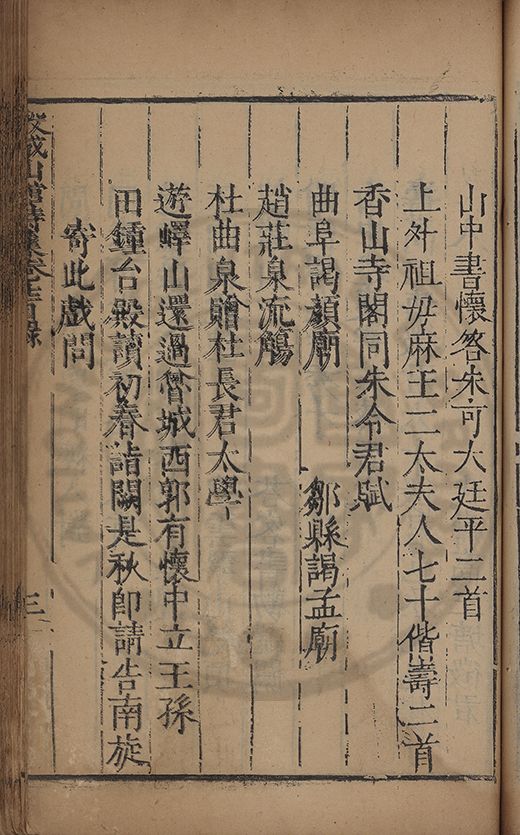 山中書懷答朱可大廷平二首
上外祖毋麻王二太夫人七十偕壽二首
香山寺閣同朱令君賦
曲阜謁顏廟　鄒縣謁孟廟
趙莊泉流觴
杜曲泉贈杜長君太學
遊嶧山還過魯城西郭有懷中立王孫
田鍾台殿讀初春詣闕是秋即請告南旋
寄此戲問
三